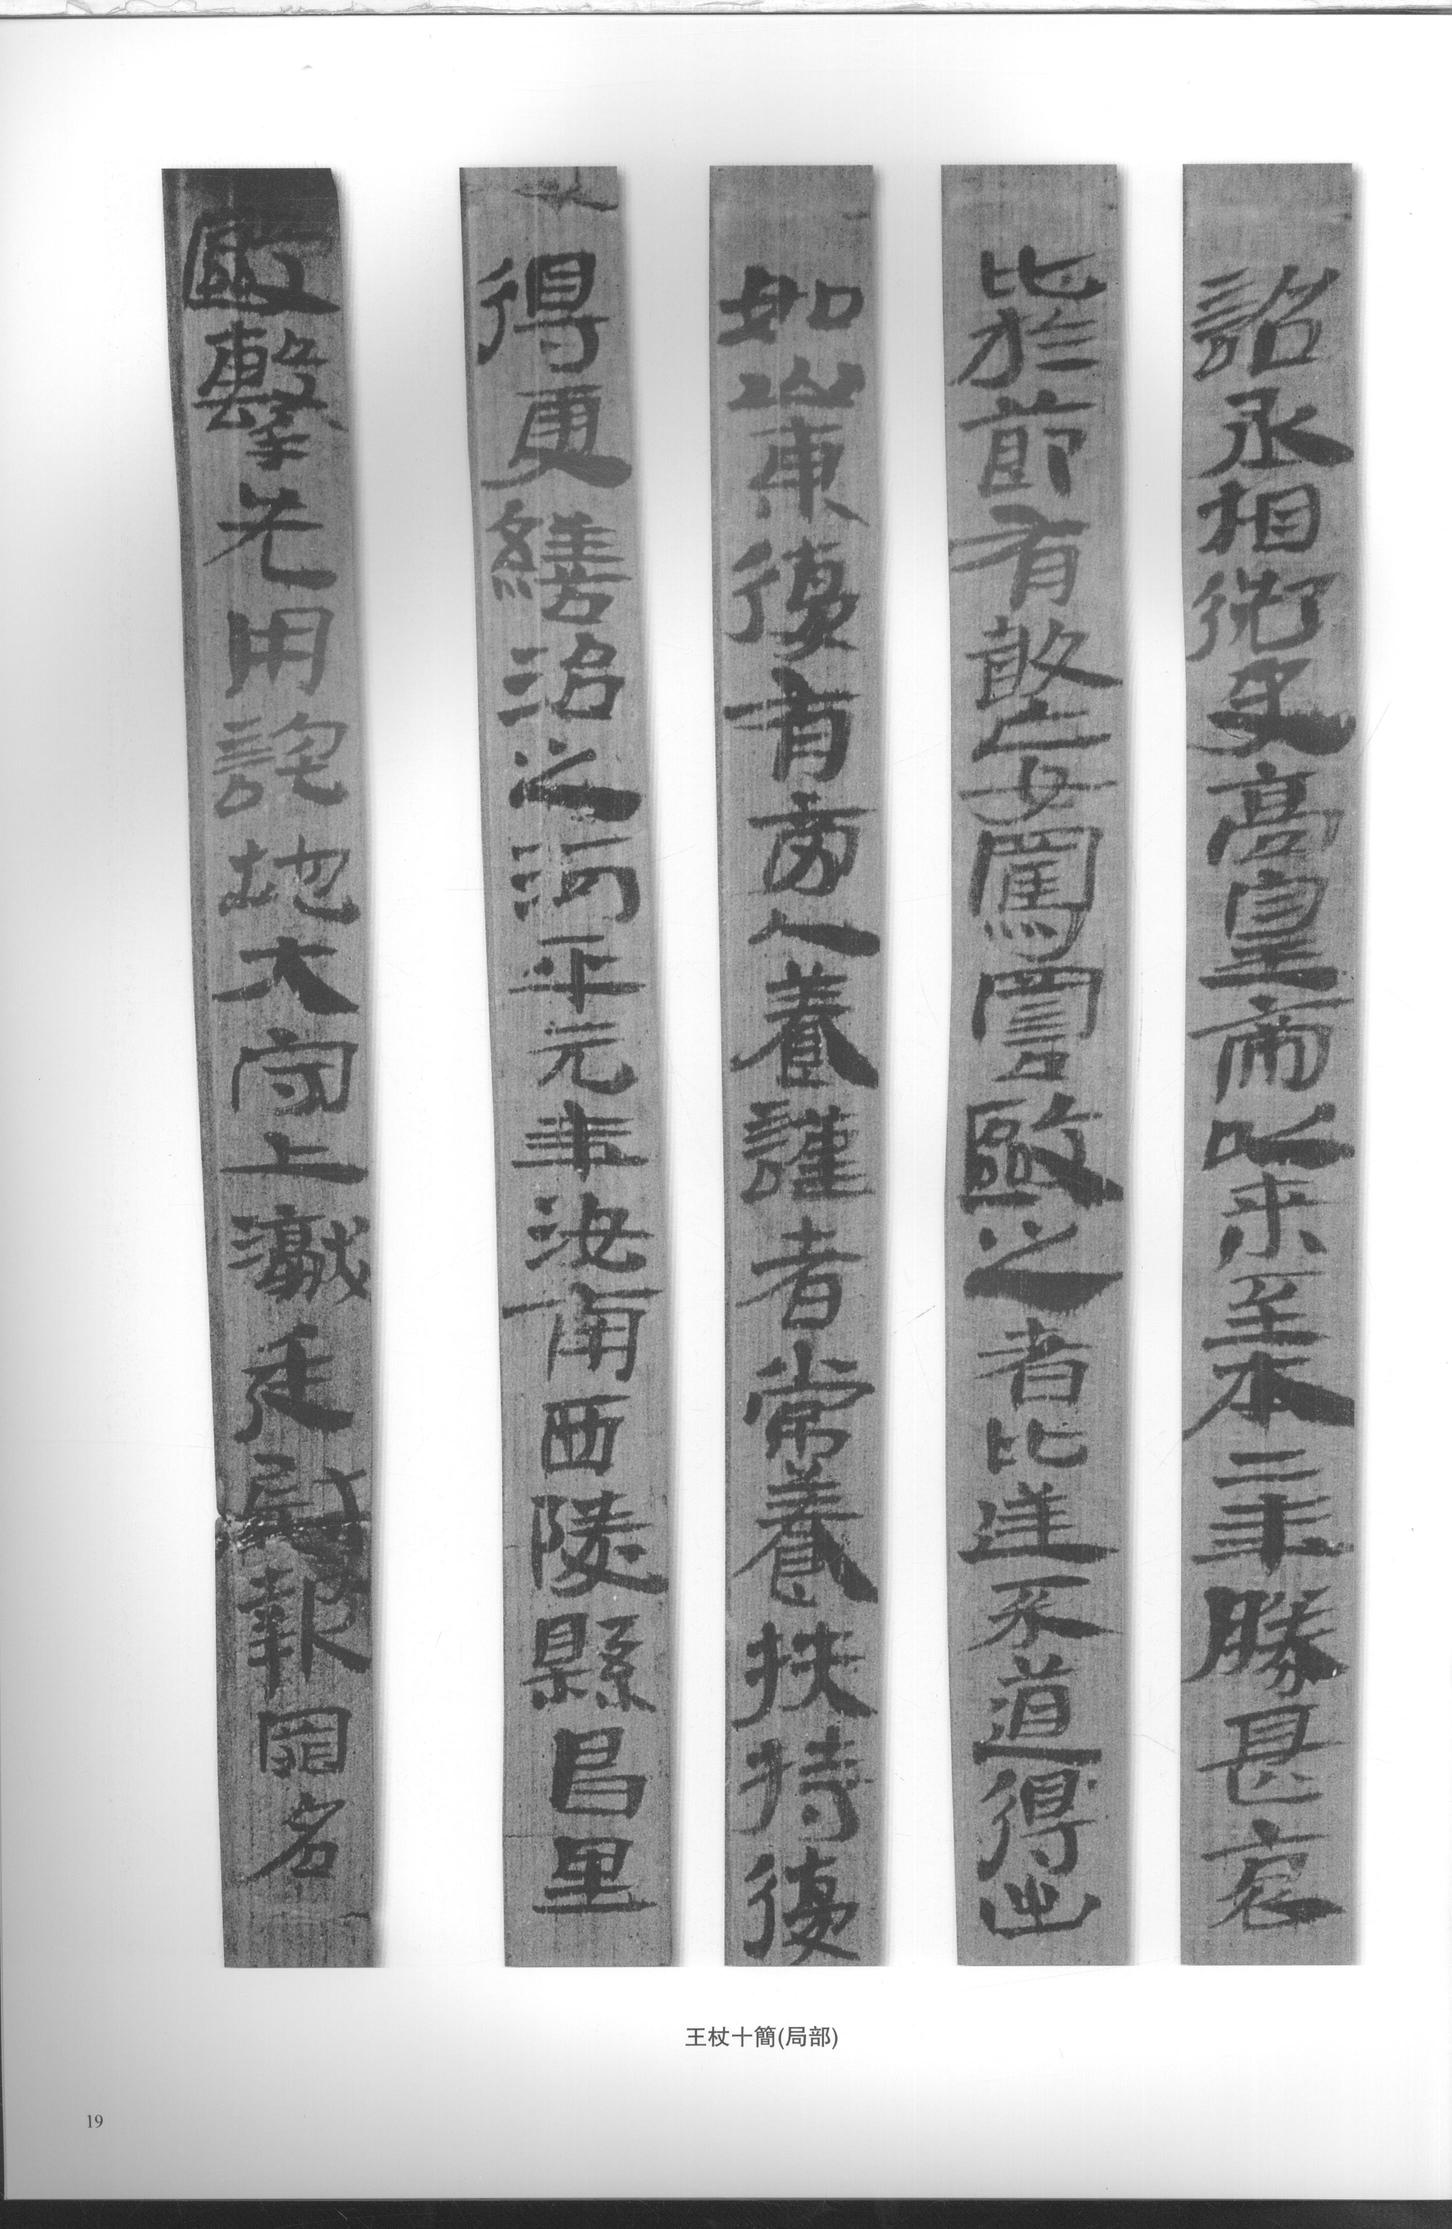 詔丞相御史高皇帝以來至本二年勝甚哀
比於節有敢妄罵詈毆之者比逆不道得出
如山東復有旁人養謹者常養扶持復
得更繕治之河平元年汝南西陵縣昌里
毆擊先用詫地大守上讞廷尉報罪名
王杖十簡(局部)
19